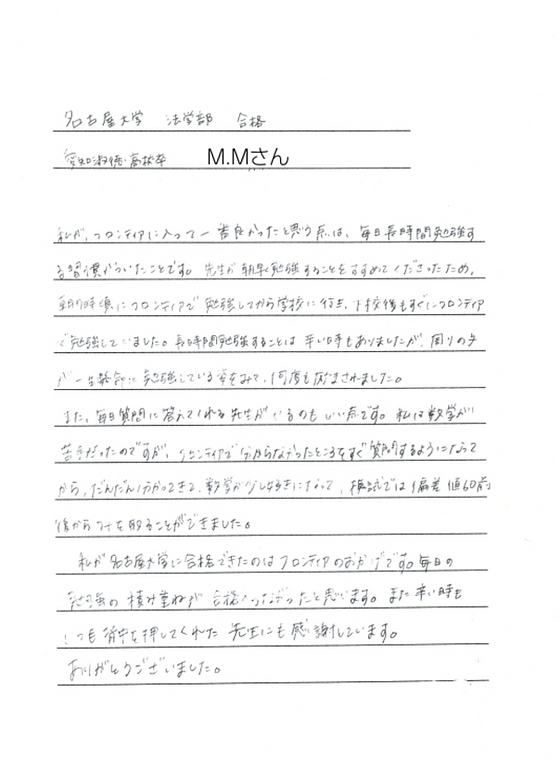 名古屋大学 法学部 合格
愛知淑徳高校卒 M.Mさん
私が、フロンティアに入って一番良かったと思う点は、毎日長時間勉強す
る習慣がついたことです。先生が朝早く勉強することをすすめてくださったため、
朝7時頃にフロンティアで勉強してから学校に行き、下校後もすぐにフロンティア
で勉強していました。長時間勉強することは辛い時もありましたが、周りの子
が一生懸命に勉強している姿をみて、何度も励まされました。
また、毎日質問に答えてくれる先生がいるのもいい点です。私は数学が
苦手だったのですが、フロンティアで分からなかったところをすぐ質問するようになって
から、だんだん分かってきて、数学が少し好きになって、模試では偏差値60前
後から を取ることができました。
私が名古屋大学に合格できたのはフロンティアのおかげです。毎日の
勉強の積み重ねが合格へつながったと思います。また辛い時も
いつも背中を押してくれた先生にも感謝しています。
ありがとうございました。